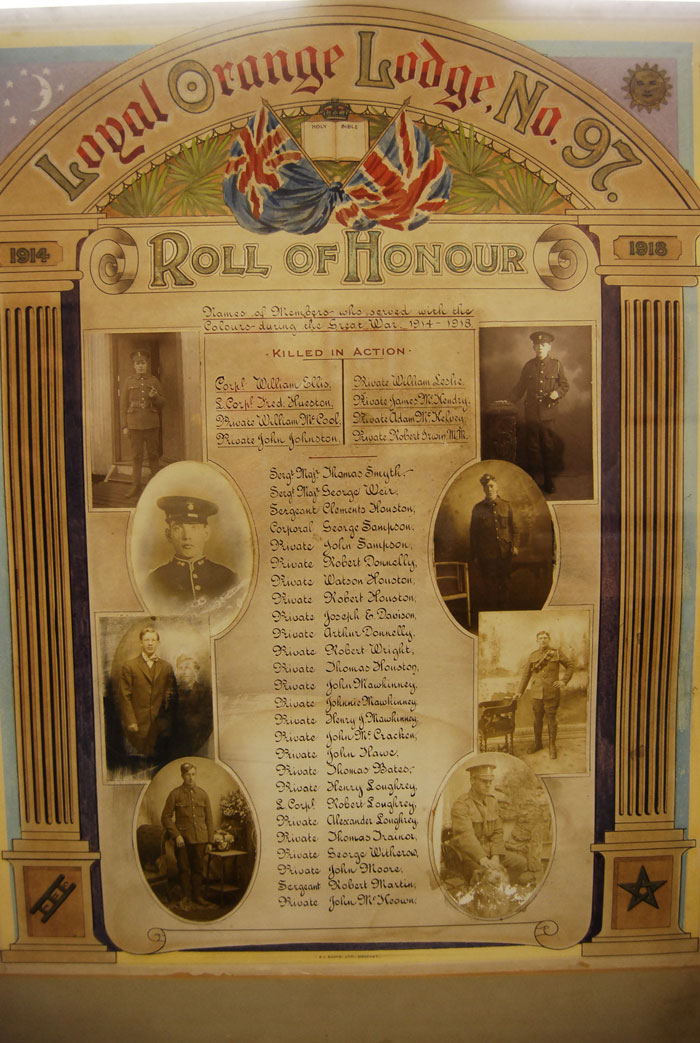 Loyal Orange Lodge, No. 97.
HOLY BIBLE
1914
1918
ROLL OF HONOUR
Names of Members who served with the
Colours during the Great War. 1914-1918.
· KILLED IN ACTION ·
Corpl William Ellis,
L. Corpl Fred. Hueston,
Private William McCool,
Private John Johnston,
Private William Leslie,
Private James McKendry,
Private Adam McKelvey,
Private Robert Irwin M.M.
Sergt Majr Thomas Smyth,
Sergt Majr George Weir,
Sergeant Clements Houston,
Corporal George Sampson,
Private John Sampson,
Private Robert Donnelly,
Private Watson Houston,
Private Robert Houston,
Private Joseph E Davison,
Private Arthur Donnelly,
Private Robert Wright,
Private Thomas Houston,
Private John Mawhinney,
Private Johnnie Mawhinney,
Private Henry J. Mawhinney,
Private John McCracken,
Private John Hawe,
Private Thomas Bates,
Private Henry Loughrey,
L Corpl Robert Loughrey,
Private Alexander Loughrey,
Private Thomas Trainor,
Private George Witherow,
Private John Moore,
Sergeant Robert Martin,
Private John McKeown,